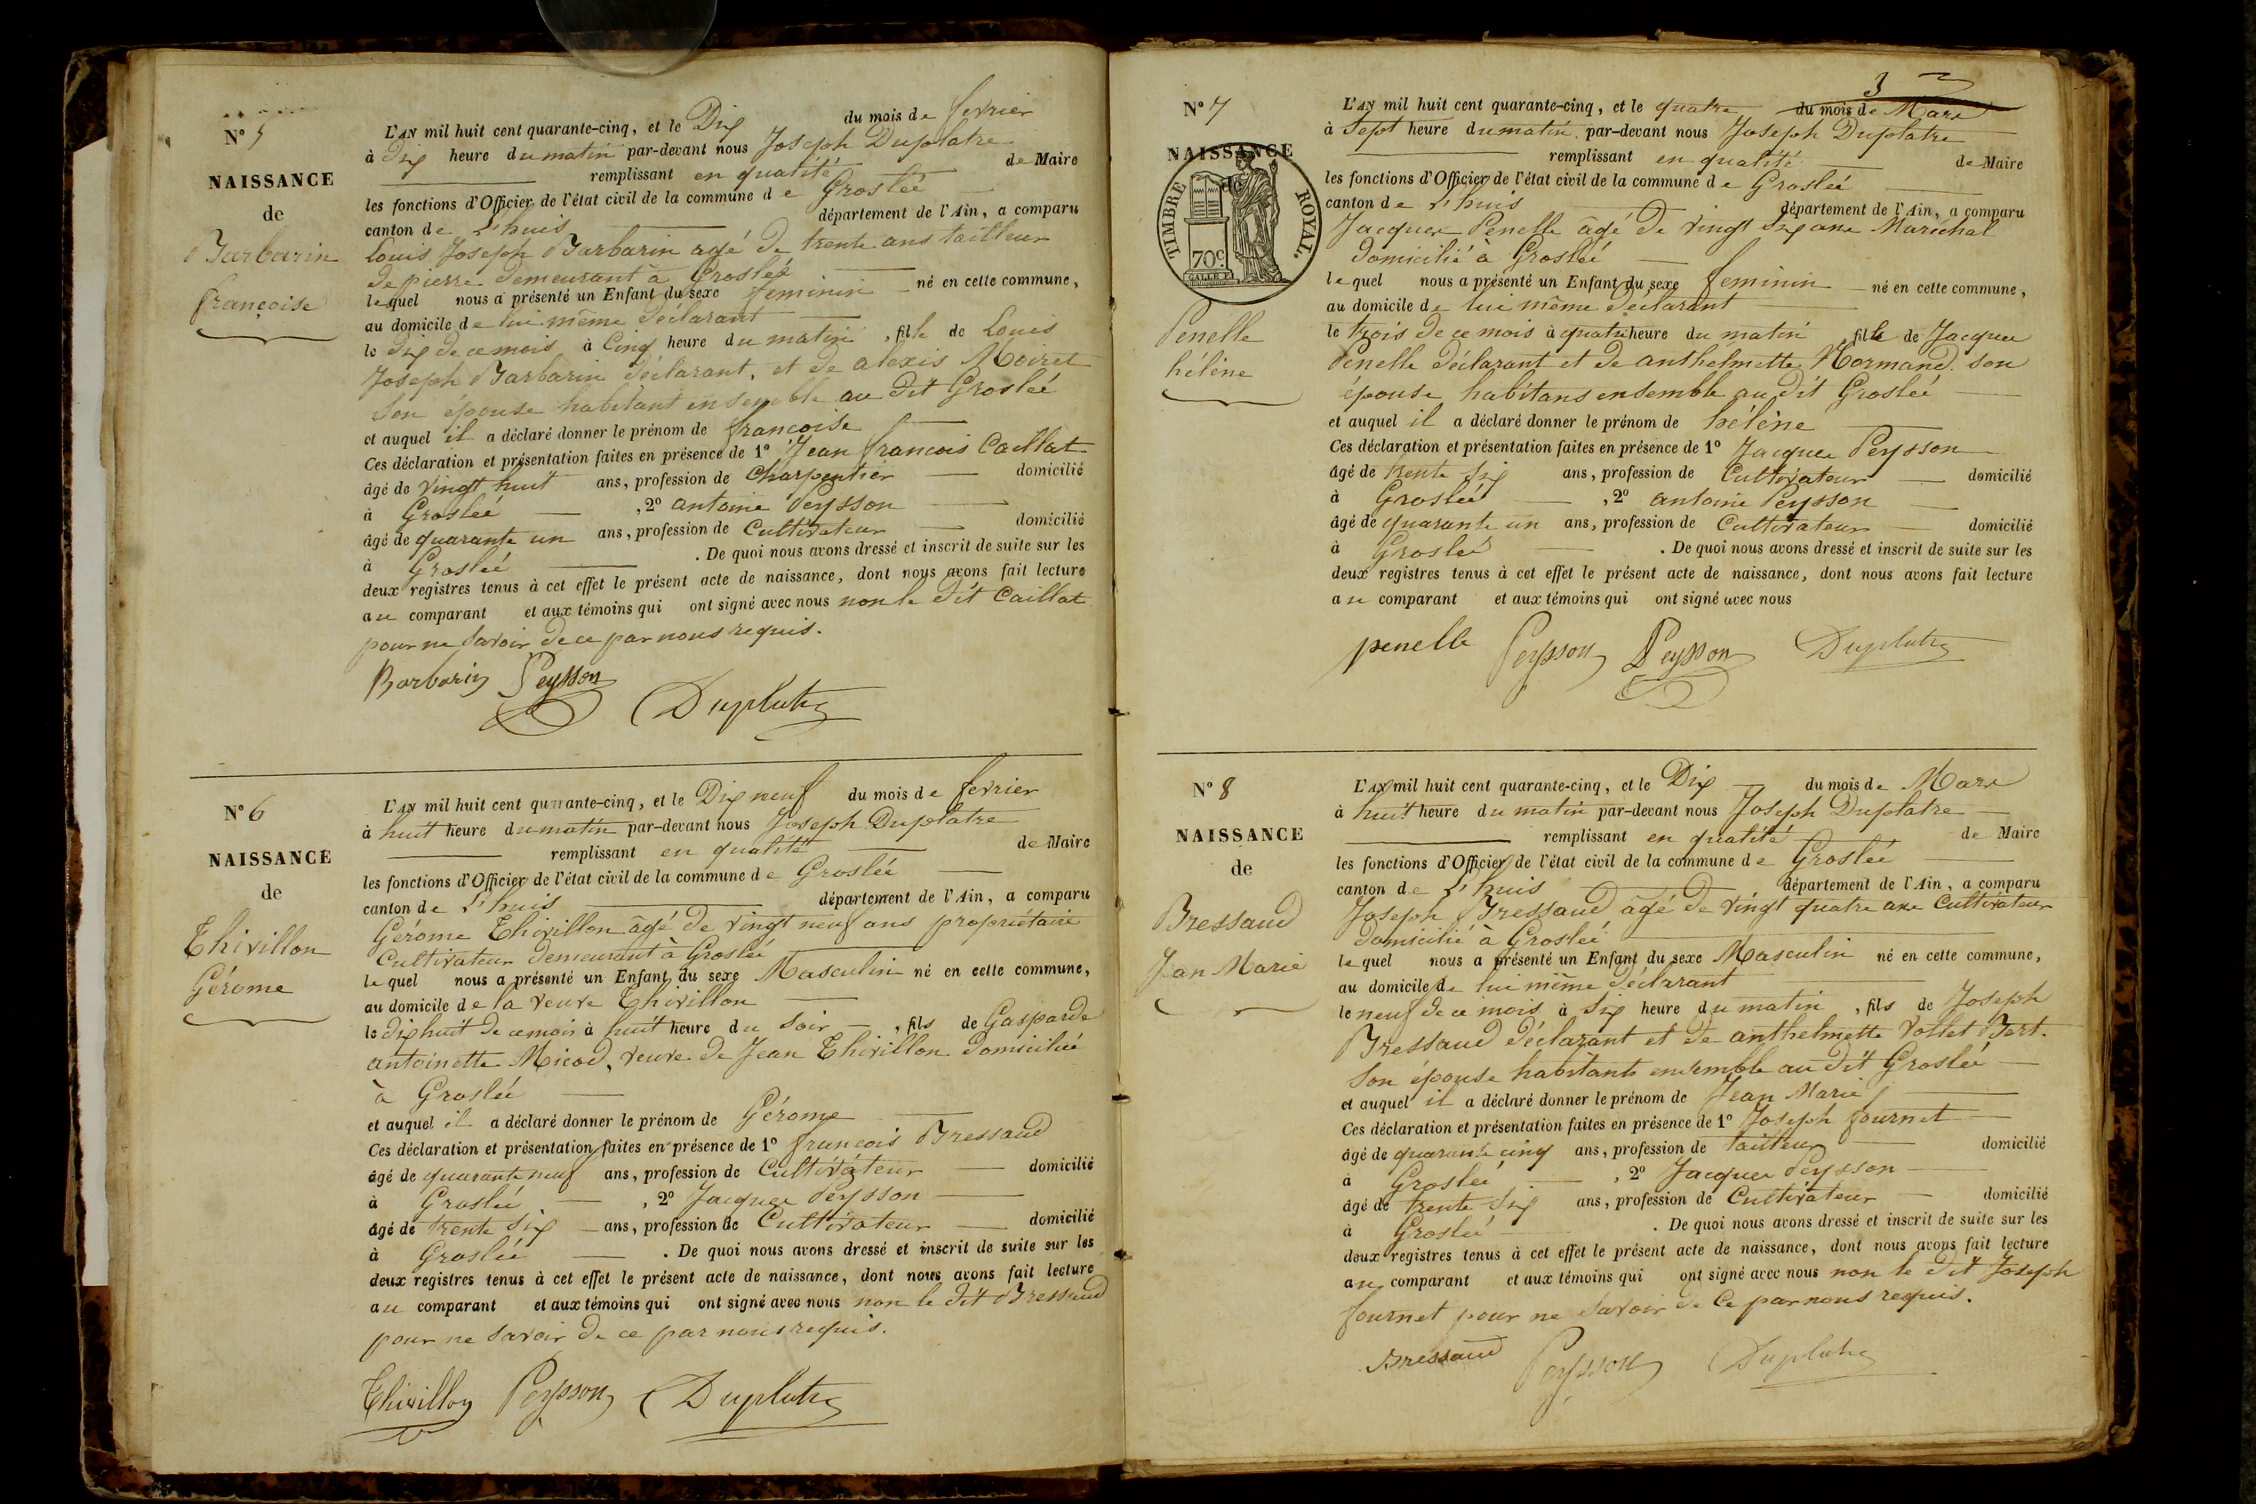 N° 5
NAISSANCE
de
Barbarin
françoise
L'AN mil huit cent quarante-cinq, et le Dix du mois de fevrier
à Dix heure du matin par-devant nous Joseph Duplatre
remplissant en qualité de Maire
les fonctions d'Officier de l'état civil de la commune de Groslée
canton de L'huis département de l'Ain, a comparu
Louis Joseph Barbarin agé de trente ans tailleur
de pierre demeurant à Groslée
lequel nous a présenté un Enfant du sexe feminin né en cette commune,
au domicile de lui même déclarant
le dix de ce mois à Cinq heure du matin, fille de Louis
Joseph Barbarin déclarant, et de alexis Moiret
Son épouse habitant ensemble au dit Groslée
et auquel il a déclaré donner le prénom de françoise
Ces déclaration et présentation faites en présence de 1° Jean francois Caillat
âgé de vingt huit ans, profession de Charpentier domicilié
à Groslée, 2° antoine Peysson
âgé de quarante un ans, profession de Cultivateur domicilié
à Groslée. De quoi nous avons dressé et inscrit de suite sur les
deux registres tenus à cet effet le présent acte de naissance, dont nous avons fait lecture
au comparant et aux témoins qui ont signé avec nous non le dit Caillat
pour ne Savoir de ce par nous requis.
Barbarin Peysson
Duplatre
N° 6
NAISSANCE
de
Thivillon
Gérome
L'AN mil huit cent quarante-cinq, et le Dix neuf du mois de fevrier
à huit heure du matin par-devant nous Joseph Duplatre
remplissant en qualité de Maire
les fonctions d'Officier de l'état civil de la commune de Groslée
canton de L'huis département de l'Ain, a comparu
Gérome Thivillon âgé de vingt neuf ans propriétaire
Cultivateur demeurant à Groslée
lequel nous a présenté un Enfant du sexe Masculin né en cette commune,
au domicile de la veuve Thivillon
le dix huit de ce mois à huit heure du Soir, fils de Gasparde
antoinette Micod, veuve de Jean Thivillon domiciliée
à Groslée
et auquel il a déclaré donner le prénom de Gérome
Ces déclaration et présentation faites en présence de 1° francois Bressaud
âgé de quarante neuf ans, profession de Cultivateur domicilié
à Groslée, 2° Jacques Peysson
âgé de trente Six ans, profession de Cultivateur domicilié
à Groslée. De quoi nous avons dressé et inscrit de suite sur les
deux registres tenus à cet effet le présent acte de naissance, dont nous avons fait lecture
au comparant et aux témoins qui ont signé avec nous non le dit Bressaud
pour ne Savoir de ce par nous requis.
Thivillon Peysson Duplatre
3
N° 7
NAISSANCE
de
TIMBRE ROYAL.
70c.
Penelle
hélène
L'AN mil huit cent quarante-cinq, et le quatre du mois de Mars
à Sept heure du matin par-devant nous Joseph Duplatre
remplissant en qualité de Maire
les fonctions d'Officier de l'état civil de la commune de Groslée
canton de L'huis département de l'Ain, a comparu
Jacques Penelle âgé de vingt Six ans Maréchal
domicilié à Groslée
lequel nous a présenté un Enfant du sexe feminin né en cette commune,
au domicile de lui même déclarant
le trois de ce mois à quatre heure du matin, fille de Jacques
Penelle déclarant et de anthelmette Normand son
épouse habitans ensemble au dit Groslée
et auquel il a déclaré donner le prénom de hélène
Ces déclaration et présentation faites en présence de 1° Jacques Peysson
âgé de trente Six ans, profession de Cultivateur domicilié
à Groslée, 2° antoine Peysson
âgé de quarante un ans, profession de Cultivateur domicilié
à Groslée. De quoi nous avons dressé et inscrit de suite sur les
deux registres tenus à cet effet le présent acte de naissance, dont nous avons fait lecture
au comparant et aux témoins qui ont signé avec nous
penelle Peysson Peysson Duplatre
N° 8
NAISSANCE
de
Bressaud
Jean Marie
L'AN mil huit cent quarante-cinq, et le Dix du mois de Mars
à huit heure du matin par-devant nous Joseph Duplatre
remplissant en qualité de Maire
les fonctions d'Officier de l'état civil de la commune de Groslée
canton de L'huis département de l'Ain, a comparu
Joseph Bressaud âgé de vingt quatre ans Cultivateur
domicilié à Groslée
lequel nous a présenté un Enfant du sexe Masculin né en cette commune,
au domicile de lui même déclarant
le neuf de ce mois à Six heure du matin, fils de Joseph
Bressaud déclarant et de anthelmette Vollet Bert.
Son épouse habitants ensemble au dit Groslée
et auquel il a déclaré donner le prénom de Jean Marie
Ces déclaration et présentation faites en présence de 1° Joseph fournet
âgé de quarante cinq ans, profession de tailleur domicilié
à Groslée, 2° Jacques Peysson
âgé de trente Six ans, profession de Cultivateur domicilié
à Groslée. De quoi nous avons dressé et inscrit de suite sur les
deux registres tenus à cet effet le présent acte de naissance, dont nous avons fait lecture
au comparant et aux témoins qui ont signé avec nous non le dit Joseph
fournet pour ne Savoir de Ce par nous requis.
Bressaud Peysson Duplatre